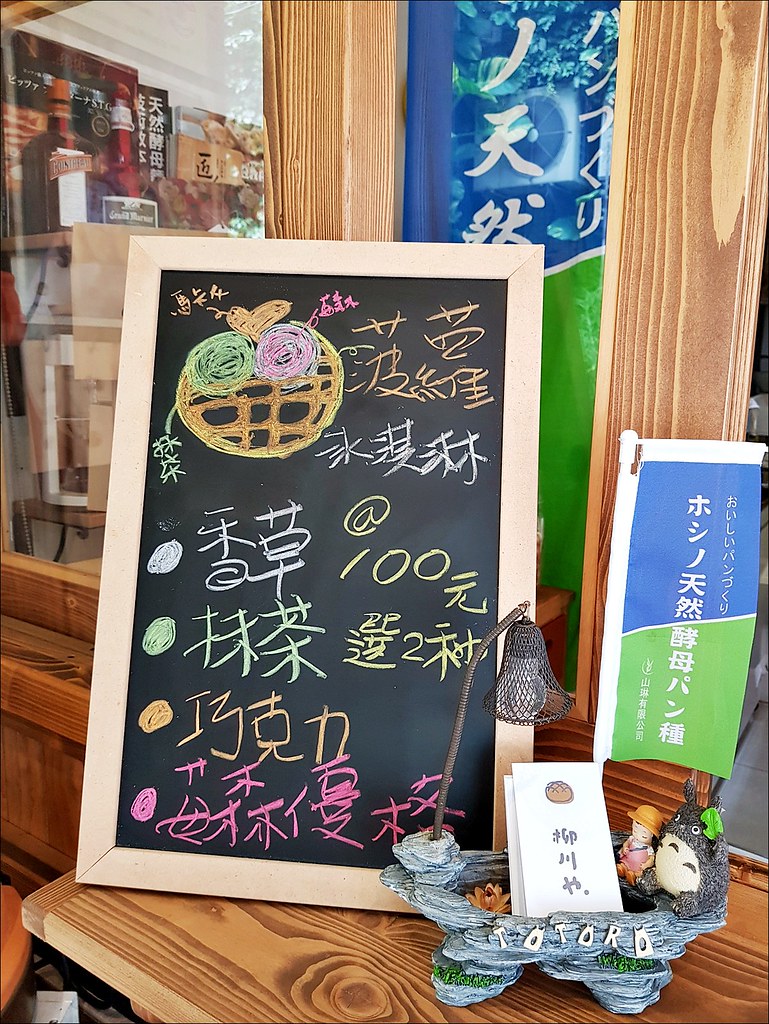 ピッツァ
天然酵母
Grand Marnier
ノ天然
パンづくり
抹茶
菠蘿
冰淇淋
香草
@
100元
抹茶
選2種
巧克力
莓森優格
おいしいパンづくり
ホシノ天然酵母パン種
山琳有限公司
柳川や.
TOTORO